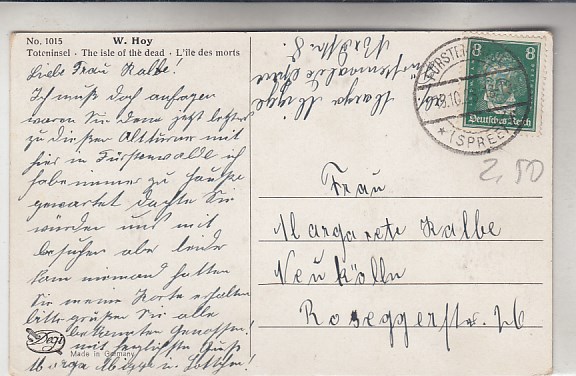 No. 1015 W. Hoy
Toteninsel · The isle of the dead · L'île des morts
Liebe Frau Kalbe!
Ich muß doch anfragen
waren Sie denn jetzt letztes
zu dieser Altturner mit
hier in Fürstenwalde ich
habe immer zu Hause
gewartet dachte Sie
würden uns mit
besuchen aber leider
kam niemand hatten
Sie meine Karte erhalten
bitte grüßen Sie alle
bekannten Genossen!
mit herzlichstem Gruß
Marga u. Lottchen!
Dege
Made in Germany
Marga
Fürstenwalde Spree
8 8
Deutsches Reich
FÜRSTE
9.10
(SPREE)
2,50
Frau
Margarete Kalbe
Neukölln
Roseggerstr. 26